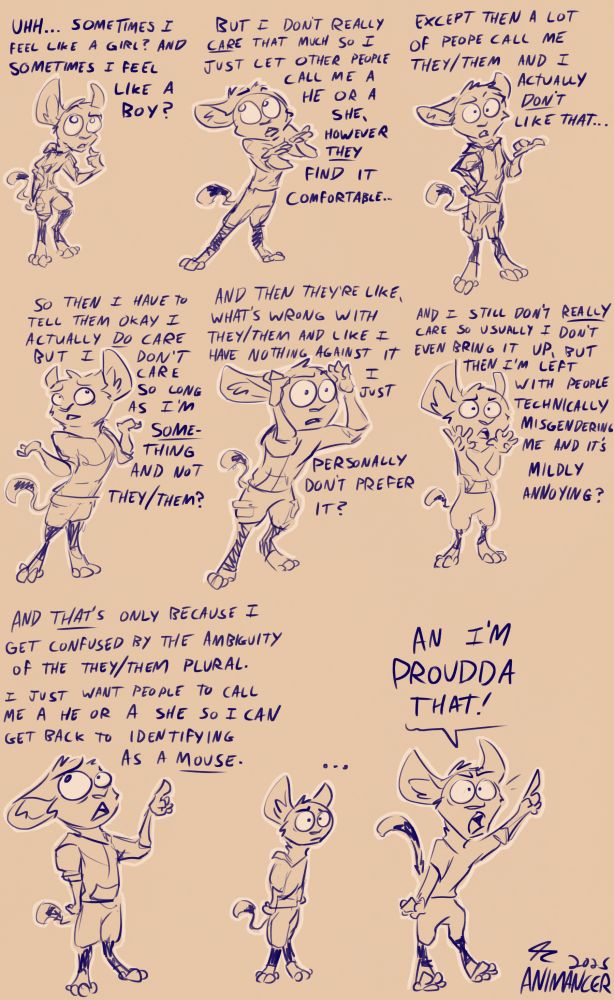 UHH... SOMETIMES I
FEEL LIKE A GIRL? AND
SOMETIMES I FEEL
LIKE A
BOY?
BUT I DON'T REALLY
CARE THAT MUCH SO I
JUST LET OTHER PEOPLE
CALL ME A
HE OR A
SHE,
HOWEVER
THEY
FIND IT
COMFORTABLE...
EXCEPT THEN A LOT
OF PEOPE CALL ME
THEY/THEM AND I
ACTUALLY
DON'T
LIKE THAT...
SO THEN I HAVE TO
TELL THEM OKAY I
ACTUALLY DO CARE
BUT I DON'T
CARE
SO LONG
AS I'M
SOME-
THING
AND NOT
THEY/THEM?
AND THEN THEY'RE LIKE,
WHAT'S WRONG WITH
THEY/THEM AND LIKE I
HAVE NOTHING AGAINST IT
I
JUST
PERSONALLY
DON'T PREFER
IT?
AND I STILL DON'T REALLY
CARE SO USUALLY I DON'T
EVEN BRING IT UP, BUT
THEN I'M LEFT
WITH PEOPLE
TECHNICALLY
MISGENDERING
ME AND IT'S
MILDLY
ANNOYING?
AND THAT'S ONLY BECAUSE I
GET CONFUSED BY THE AMBIGUITY
OF THE THEY/THEM PLURAL.
I JUST WANT PEOPLE TO CALL
ME A HE OR A SHE SO I CAN
GET BACK TO IDENTIFYING
AS A MOUSE.
...
AN I'M
PROUDDA
THAT!
2025
ANIMANCER